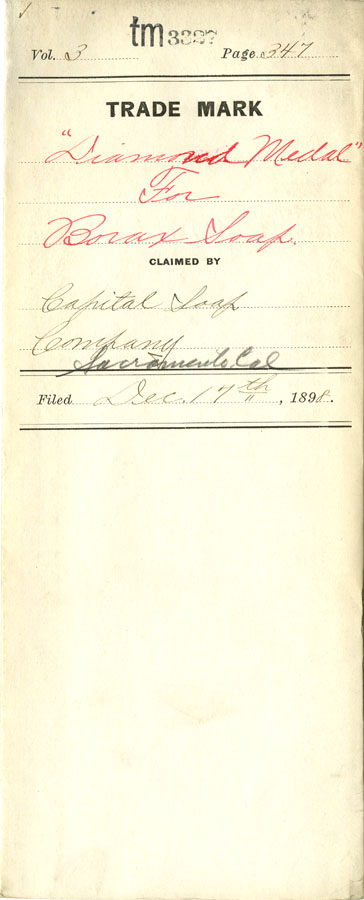 tm 3327
Vol. 3 Page 347
TRADE MARK
"Diamond Medal"
For
Borax Soap.
CLAIMED BY
Capital Soap
Company
Sacramento Cal
Filed Dec. 17th, 1898.